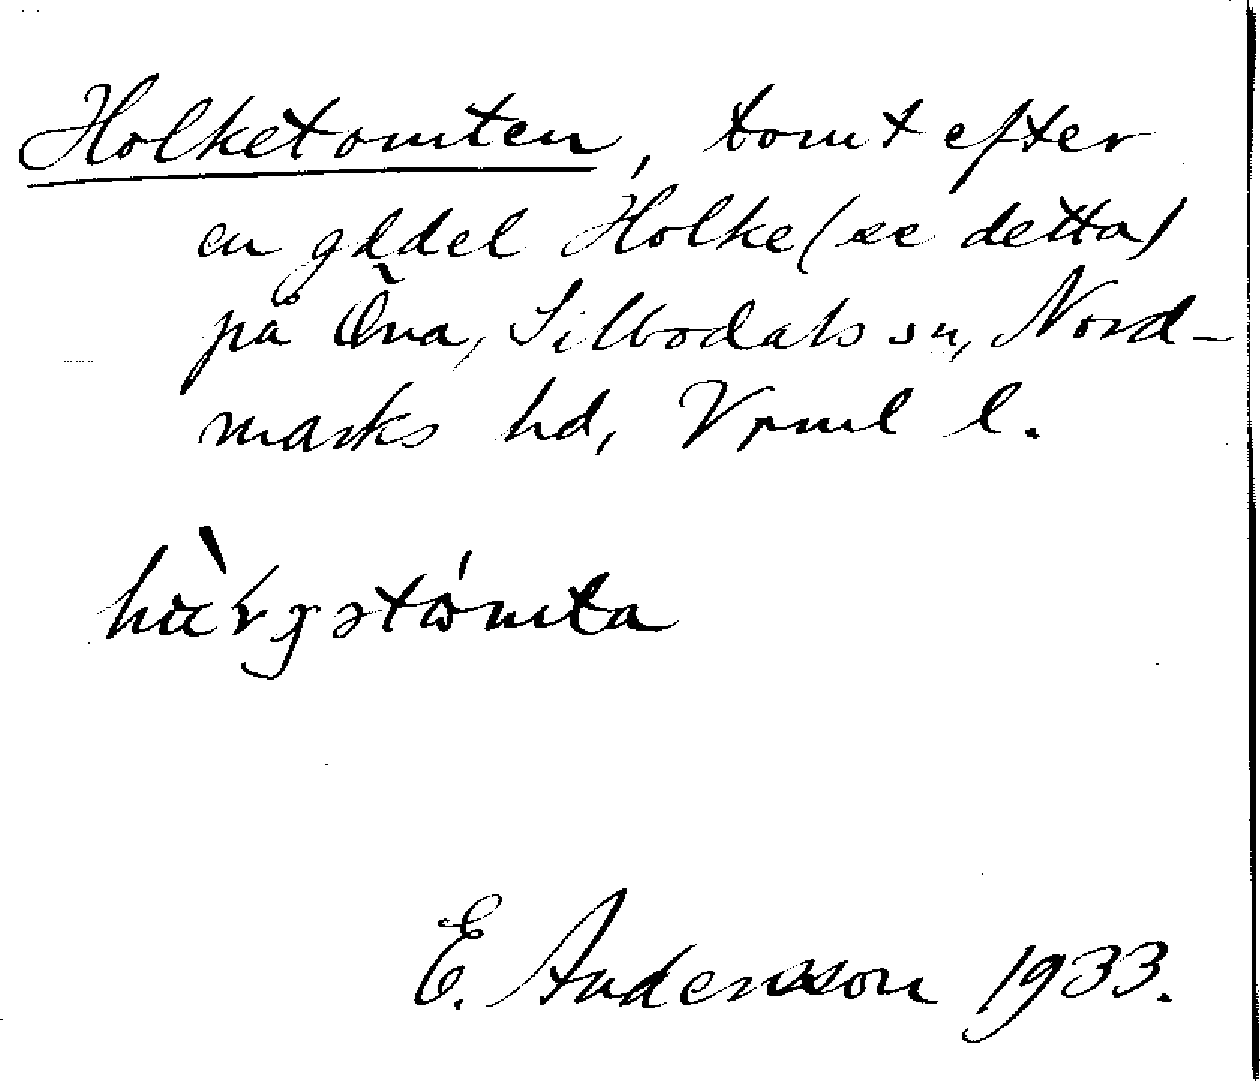 Holketomten, tomt efter
en gddel Holke (se detta)
på Öna, Silbodals sn, Nord-
marks hd, Vrml l.
E. Andersson 1933.